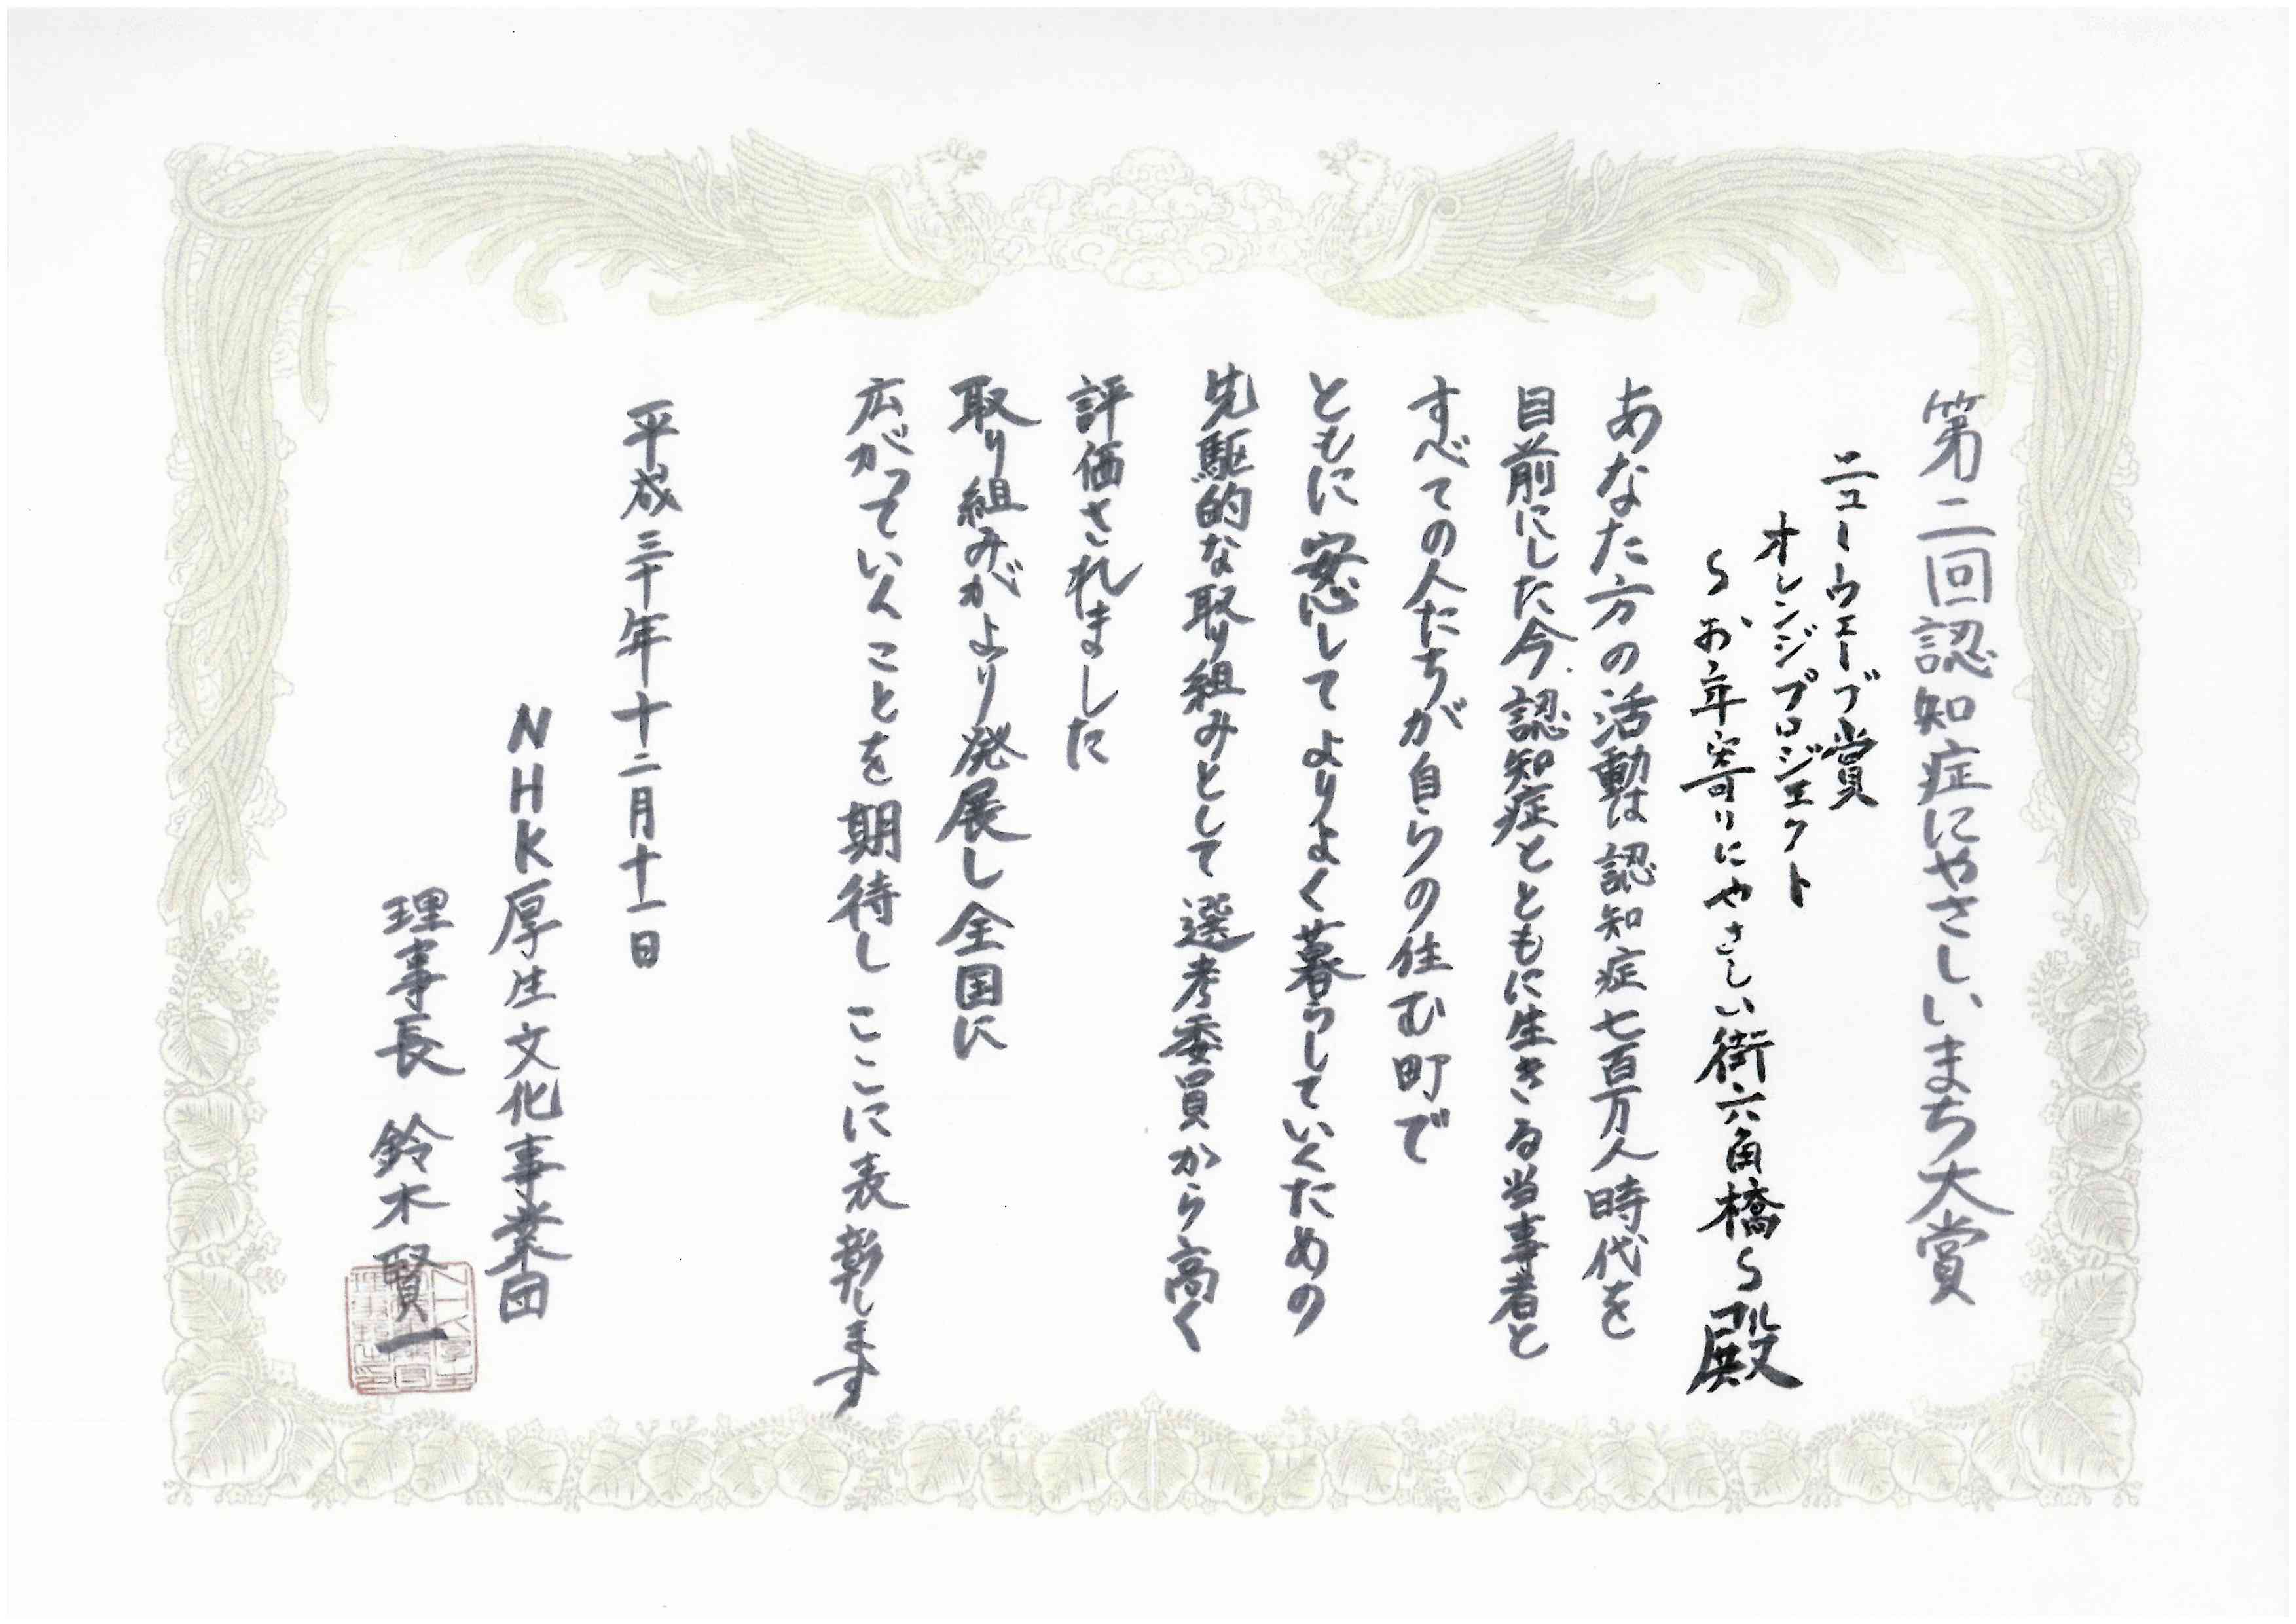 第二回認知症にやさしいまち大賞
ニューウェーブ賞
オレンジプロジェクト
～お年寄りにやさしい街六角橋～殿
あなた方の活動は認知症七百万人時代を
目前にした今認知症とともに生きる当事者と
すべての人たちが自らの住む町で
ともに安心してよりよく暮らしていくための
先駆的な取り組みとして選考委員から高く
評価されました
取り組みがより発展し全国に
広がっていくことを期待しここに表彰します
平成三十年十二月十一日
NHK厚生文化事業団
理事長 鈴木賢一